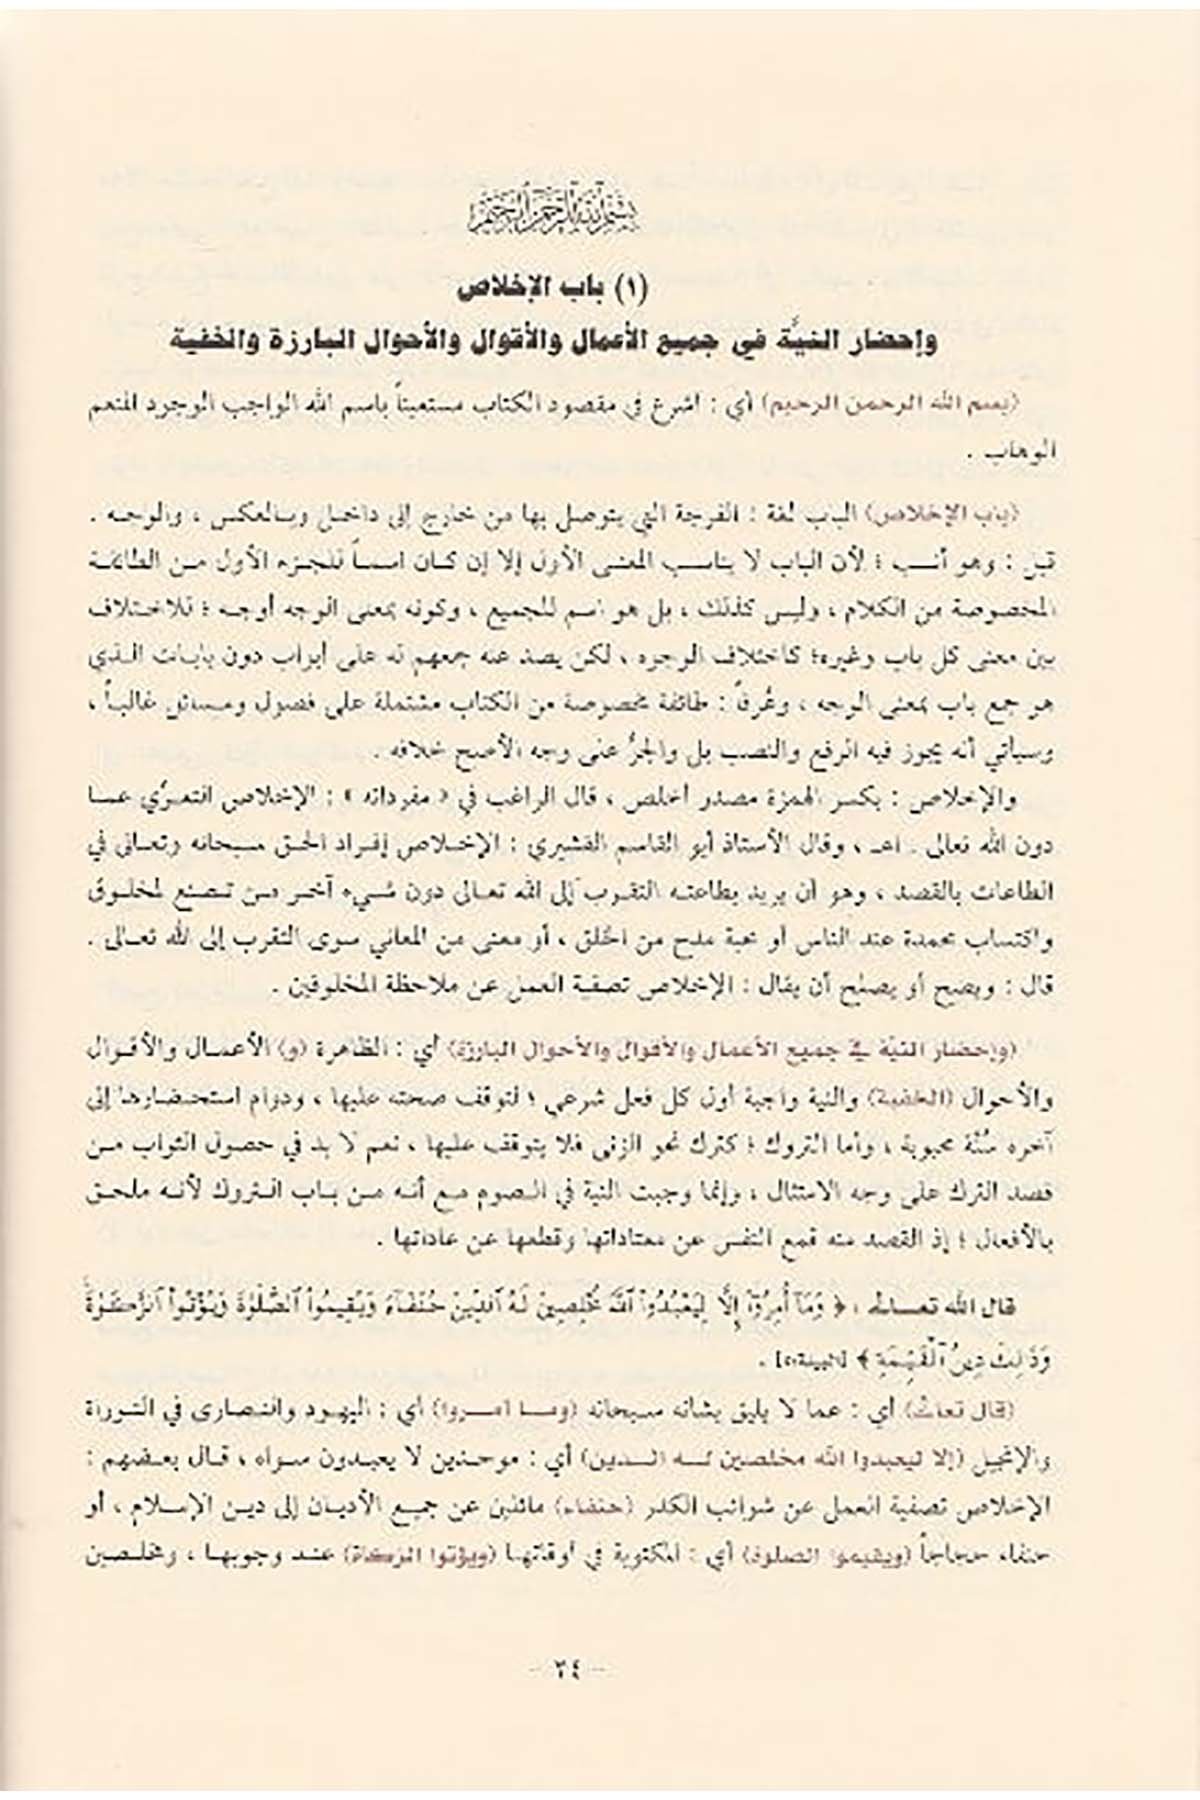 بسم الله الرحمن الرحيم
(١) باب الإخلاص
وإحضار النيَّة في جميع الأعمال والأقوال والأحوال البارزة والخفية
(بسم الله الرحمن الرحيم) أي : أشرع في مقصود الكتاب مستعيناً باسم الله الواجب الوجود المنعم
الوهاب .
(باب الإخلاص) الباب لغة : الفرجة التي يتوصل بها من خارج إلى داخل وبالعكس ، والوجه .
قيل : وهو أنسب ؛ لأن الباب لا يناسب المعنى الأول إلا إن كان اسماً للجزء الأول من الطائفة
المخصوصة من الكلام ، وليس كذلك ، بل هو اسم للجميع ، وكونه بمعنى الوجه أوجه ؛ للاختلاف
بين معنى كل باب وغيره؛ كاختلاف الوجوه ، لكن يصد عنه جمعهم له على أبواب دون بابات الذي
هو جمع باب بمعنى الوجه ، وعُرفاً : طائفة مخصوصة من الكتاب مشتملة على فصول ومسائل غالباً ،
وسيأتي أنه يجوز فيه الرفع والنصب بل والجرُّ على وجه الأصح خلافه .
والإخلاص : بكسر الهمزة مصدر أخلص ، قال الراغب في « مفرداته » : الإخلاص التعرِّي عما
دون الله تعالى . اهـ ، وقال الأستاذ أبو القاسم القشيري : الإخلاص إفراد الحق سبحانه وتعالى في
الطاعات بالقصد ، وهو أن يريد بطاعته التقرب إلى الله تعالى دون شيء آخر من تصنع لمخلوق
واكتساب محمدة عند الناس أو محبة مدح من الخلق ، أو معنى من المعاني سوى التقرب إلى الله تعالى .
قال : ويصح أو يصلح أن يقال : الإخلاص تصفية العمل عن ملاحظة المخلوقين .
(وإحضار النية في جميع الأعمال والأقوال والأحوال البارزة) أي : الظاهرة (و) الأعمال والأقوال
والأحوال (الخفية) والنية واجبة أول كل فعل شرعي ؛ لتوقف صحته عليها ، ودوام استحضارها إلى
آخره سُنَّة محبوبة ، وأما التروك ؛ كترك نحو الزنى فلا يتوقف عليها ، نعم لا بد في حصول الثواب من
قصد الترك على وجه الامتثال ، وإنما وجبت النية في الصوم مع أنه من باب التروك لأنه ملحق
بالأفعال ؛ إذ القصد منه قمع النفس عن معتاداتها وقطعها عن عاداتها .
قال الله تعالى : ﴿ وَمَآ أُمِرُوٓا۟ إِلَّا لِيَعْبُدُوا۟ ٱللَّهَ مُخْلِصِينَ لَهُ ٱلدِّينَ حُنَفَآءَ وَيُقِيمُوا۟ ٱلصَّلَوٰةَ وَيُؤْتُوا۟ ٱلزَّكَوٰةَ
وَذَٰلِكَ دِينُ ٱلْقَيِّمَةِ ﴾ [البينة:٥] .
(قال تعالى) أي : عما لا يليق بشأنه سبحانه (وما أمروا) أي : اليهود والنصارى في التوراة
والإنجيل (إلا ليعبدوا الله مخلصين له الدين) أي : موحدين لا يعبدون سواه ، قال بعضهم :
الإخلاص تصفية العمل عن شوائب الكدر (حنفاء) مائلين عن جميع الأديان إلى دين الإسلام ، أو
حنفاء حجاجاً (ويقيموا الصلوة) أي : المكتوبة في أوقاتها (ويؤتوا الزكاة) عند وجوبها ، ومخلصين
- ٣٤ -